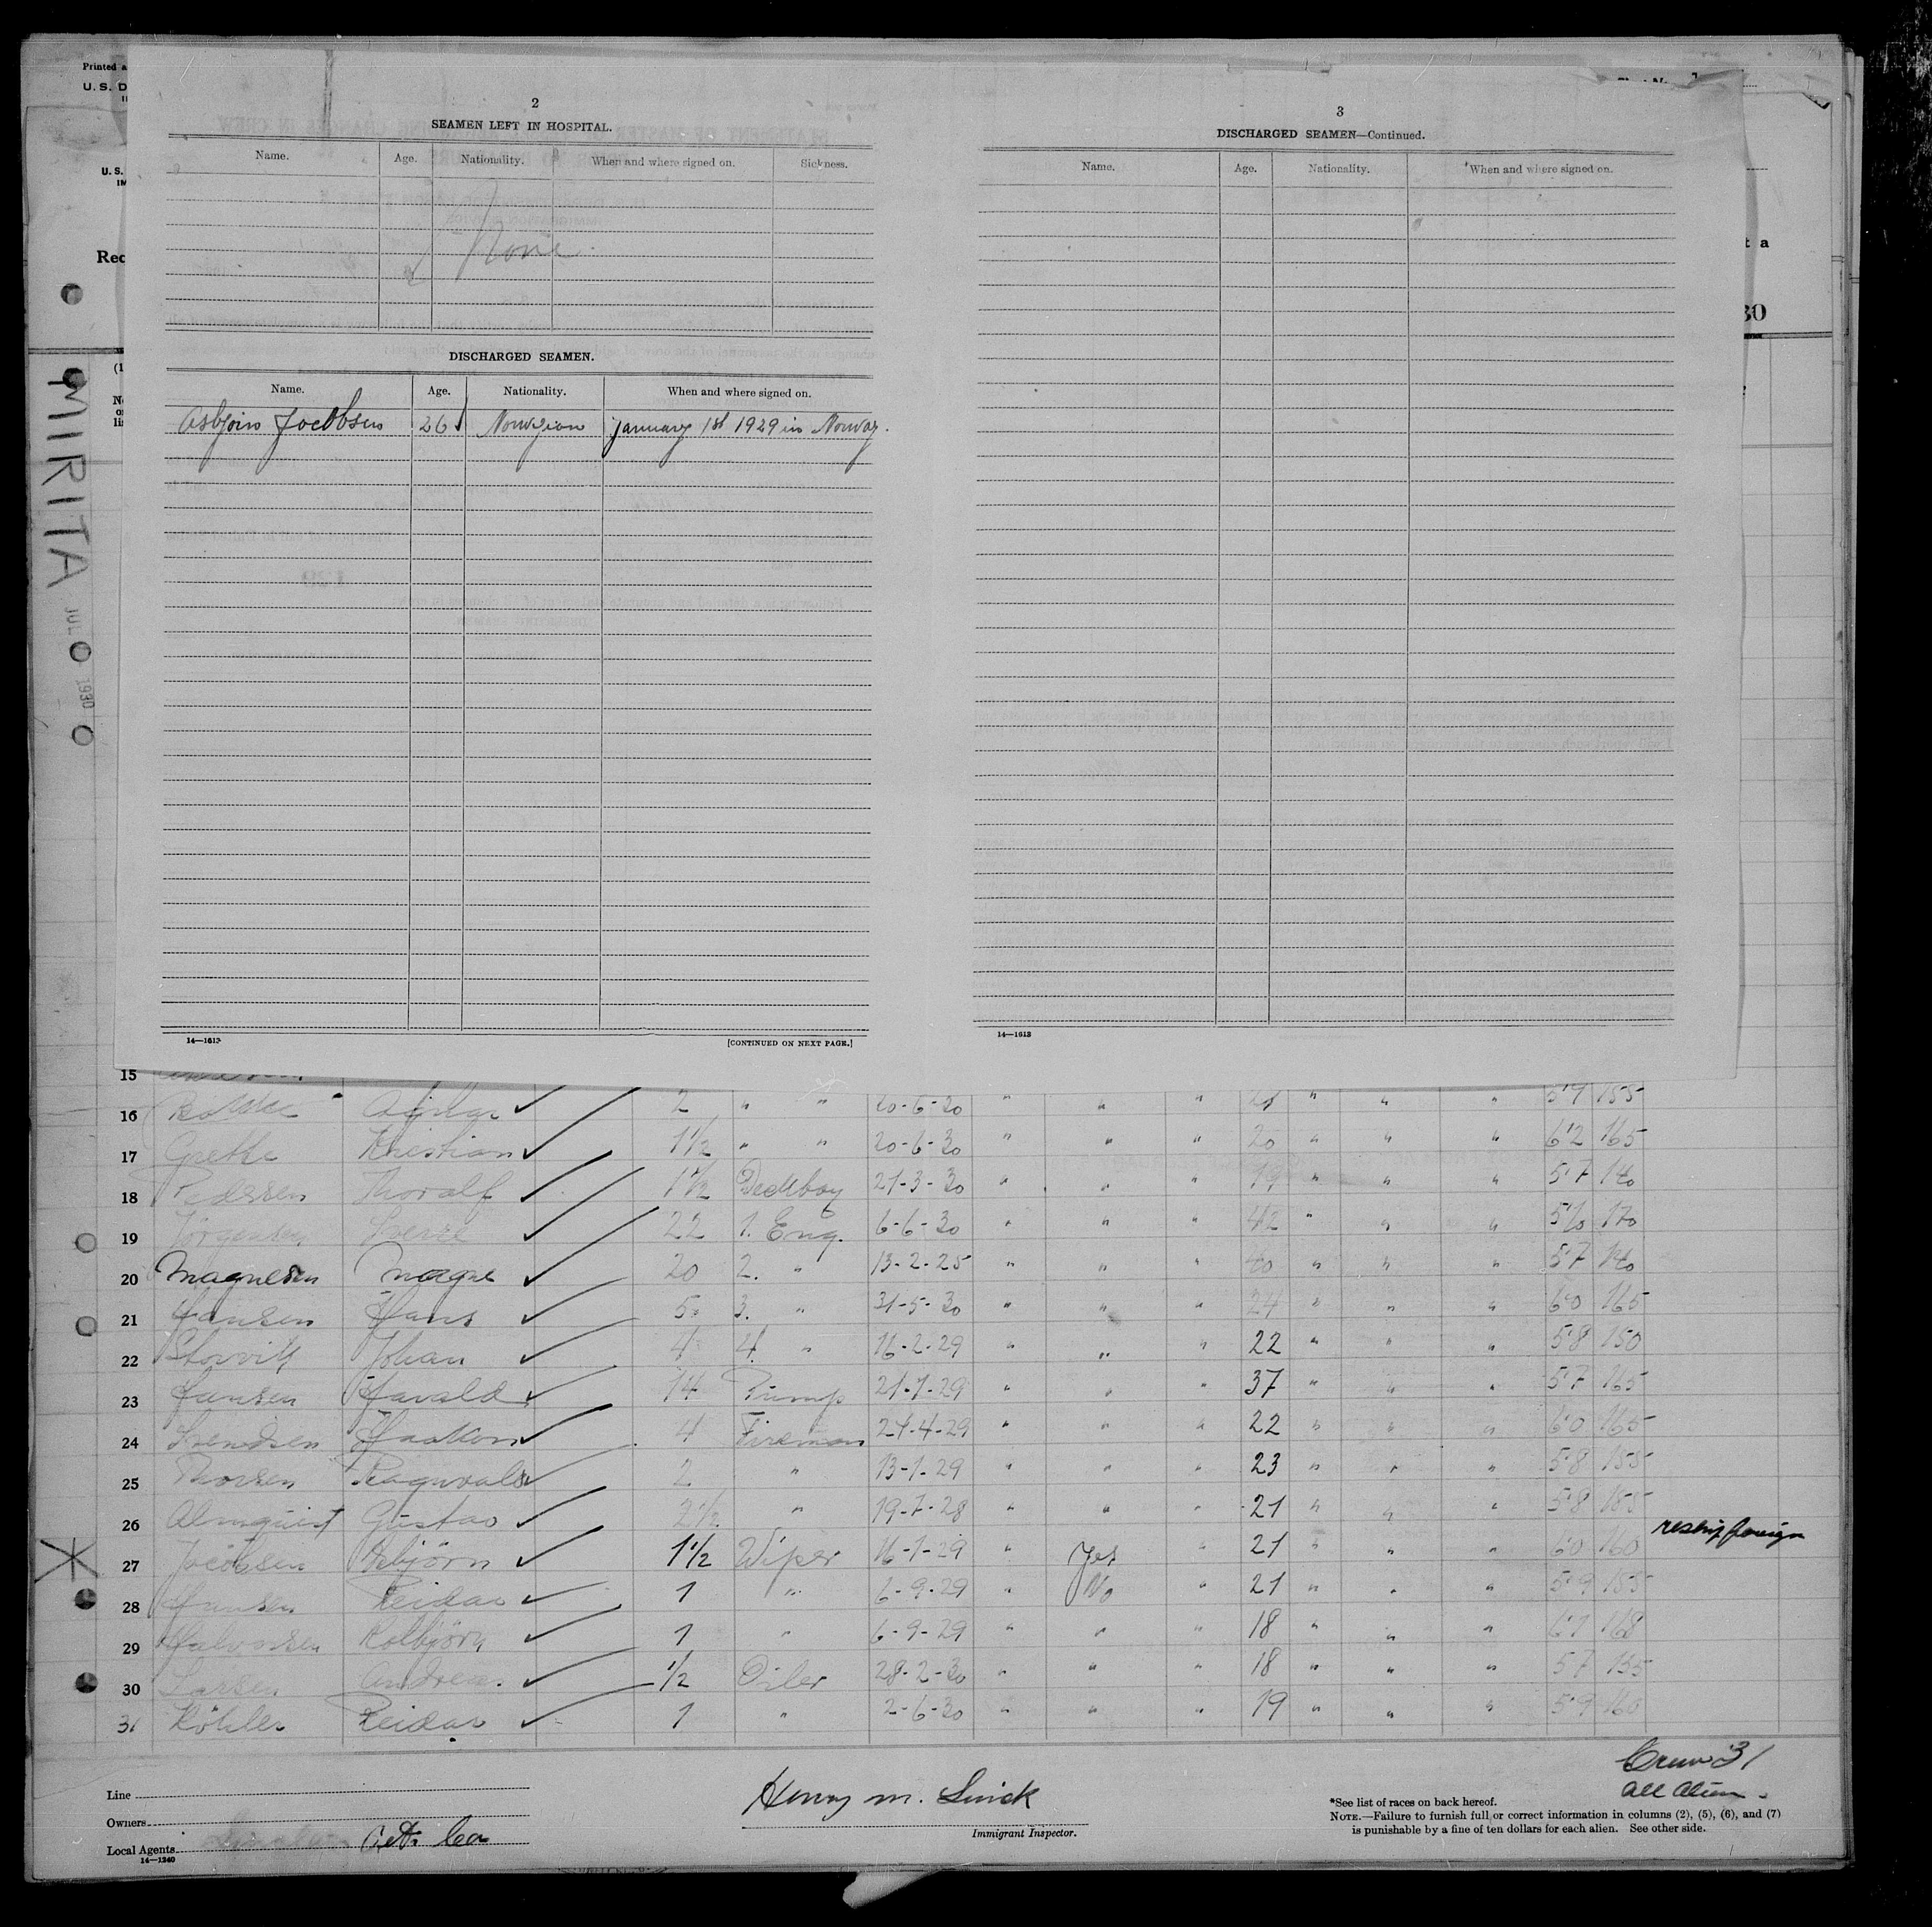 Printed a
U. S. D
U. S.
IM
Rec
t a
30
MIRITA
1930
2
SEAMEN LEFT IN HOSPITAL.
Name. Age. Nationality. When and where signed on. Sickness.
None
DISCHARGED SEAMEN.
Name. Age. Nationality. When and where signed on.
Asbjoin Jocobsen 26 Norwegian January 1st 1929 in Norway.
14—1613
[CONTINUED ON NEXT PAGE.]
3
DISCHARGED SEAMEN—Continued.
Name. Age. Nationality. When and where signed on.
14—1613
15
16 2 " " 20-6-30 " " " " " " 5'9 155
17 Kristian 1½ " " 20-6-30 " " " 20 " " " 6'2 165
18 Pedersen Thoralf 1½ Deckboy 21-3-30 " " " 19 " " " 5'7 140
19 Jörgensen 22 1. Eng. 6-6-30 " " " 42 " " " 5'10 170
20 Magnesen Magne 20 2. " 13-2-25 " " " 40 " " " 5'7 140
21 Hansen Hans 5 3. " 31-5-30 " " " 24 " " " 6'0 165
22 Storvik Johan 4 4. " 16-2-29 " " " 22 " " " 5'8 150
23 Jansen Harald 14 Pump 21-1-29 " " " 37 " " " 5'7 165
24 Svendsen Haakon 4 Fireman 24-4-29 " " " 22 " " " 6'0 165
25 Thorsen Ragnvald 2 " 13-1-29 " " " 23 " " " 5'8 155
26 Almquist Gustav 2½ " 19-7-28 " " " 21 " " " 5'8 155
27 Jacobsen Asbjörn 1½ Wiper 16-1-29 " Yes " 21 " " " 6'0 160 reship foreign
28 Hansen Reidar 1 " 6-9-29 " No " 21 " " " 5'9 155
29 Halvorsen Kolbjörn 1 " 6-9-29 " " " 18 " " " 6'1 168
30 Larsen Andreas 1/2 Oiler 28-2-30 " " " 18 " " " 5'7 135
31 Köhler Reidar 1 " 2-6-30 " " " 19 " " " 5'9 160
Crew 31
All Alien
Line
Owners
Local Agents
14—1240
Henry M. Smick
Immigrant Inspector.
*See list of races on back hereof.
NOTE.—Failure to furnish full or correct information in columns (2), (5), (6), and (7)
is punishable by a fine of ten dollars for each alien. See other side.